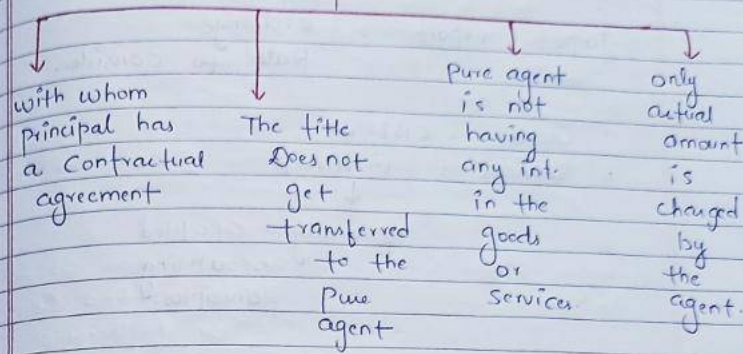 with whom
principal has
a contractual
agreement
The title
Does not
get
transferred
to the
Pure
agent
Pure agent
is not
having
any int.
in the
goods
or
services.
only
actual
amount
is
charged
by
the
agent.